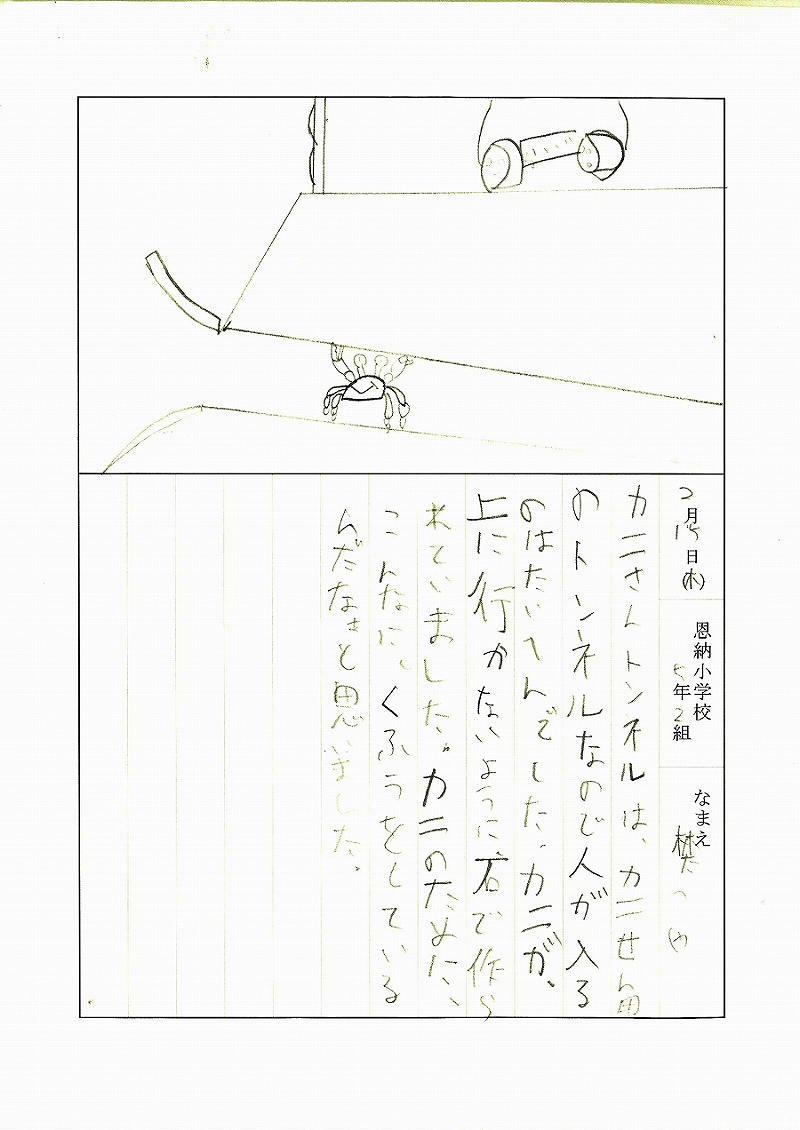 2月15日(木)
恩納小学校
5年2組
なまえ
カニさんトンネルは、カニせん用
のトンネルなので人が入る
のはたいへんでした。カニが、
上に行かないように石で作ら
れていました。カニのために、
こんなに、くふうをしている
んだなぁと思いました。